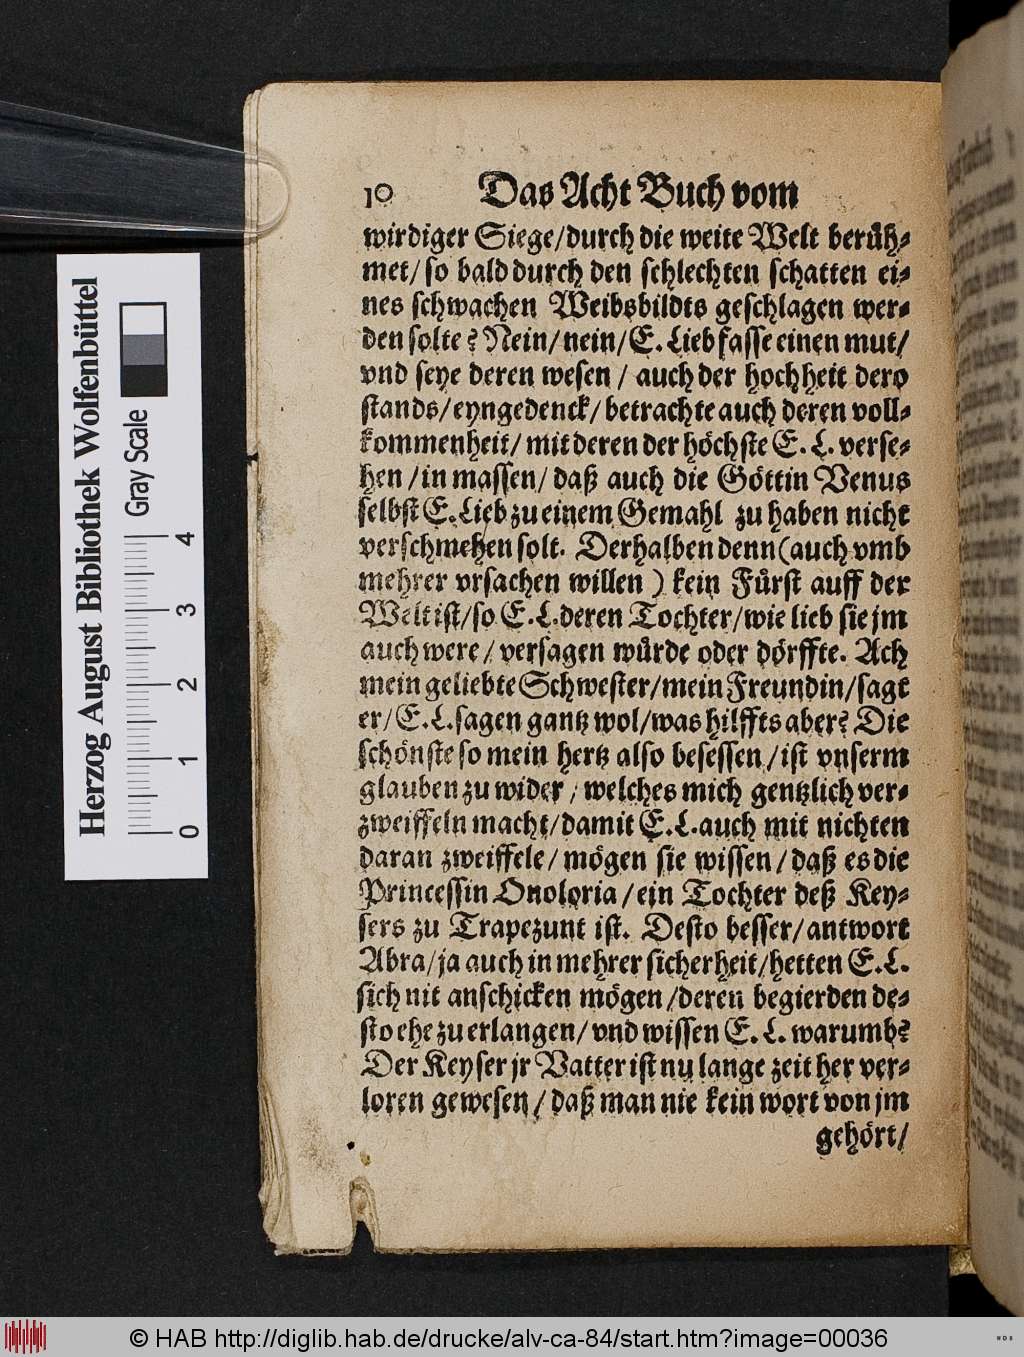 10 Das Acht Buch vom
wirdiger Siege/durch die weite Welt beruͤh⸗
met/ so bald durch den schlechten schatten ei⸗
nes schwachen Weibsbildts geschlagen wer⸗
den solte? Nein/ nein/ E. Lieb fasse einen mut/
vnd seye deren wesen / auch der hochheit dero
stands/ eyngedenck/ betrachte auch deren voll⸗
kommenheit/ mit deren der höchste E. L. verse⸗
hen / in massen/ daß auch die Göttin Venus
selbst E. Lieb zu einem Gemahl zu haben nicht
verschmehen solt. Derhalben denn (auch vmb
mehrer vrsachen willen ) kein Fuͤrst auff der
Welt ist/ so E. L. deren Tochter/ wie lieb sie jm
auch were / versagen wuͤrde oder dörffte. Ach
mein geliebte Schwester/ mein Freundin/ sagt
er/ E. L. sagen gantz wol/ was hilffts aber? Die
schönste so mein hertz also besessen / ist vnserm
glauben zu wider / welches mich gentzlich ver⸗
zweiffeln macht/ damit E. L. auch mit nichten
daran zweiffele/ mögen sie wissen/ daß es die
Princessin Onoloria / ein Tochter deß Key⸗
sers zu Trapezunt ist. Desto besser/ antwort
Abra/ ja auch in mehrer sicherheit/ hetten E. L.
sich nit anschicken mögen / deren begierden de⸗
sto ehe zu erlangen/ vnd wissen E. L. warumb?
Der Keyser jr Vatter ist nu lange zeit her ver⸗
loren gewesen / daß man nie kein wort von jm
gehört/
Herzog August Bibliothek Wolfenbüttel
Gray Scale
0 1 2 3 4
© HAB http://diglib.hab.de/drucke/alv-ca-84/start.htm?image=00036